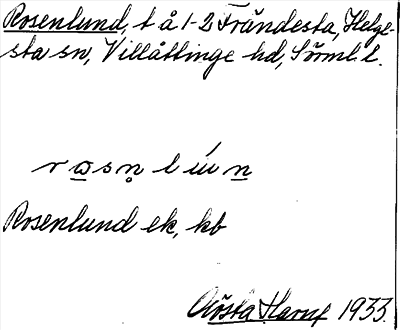 Rosenlund, t å 1-2 Frändesta, Helge-
sta sn, Villåttinge hd, Sörml. l.
Rosenlund ek, kb
Gösta Harnf 1933.